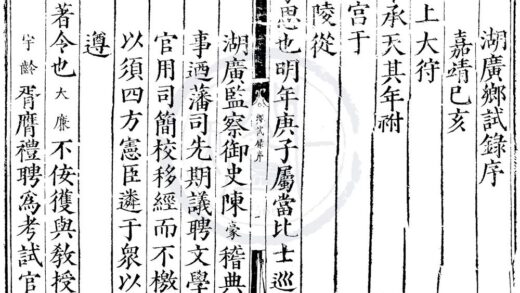 湖廣鄉試錄序
嘉靖巳亥
上大狩
承天其年祔
宮于
陵從
思也明年庚子屬當比士巡
試錄序 一
湖廣監察御史陳稽典
事迺藩司先期議聘文學
官用司簡校移經而不檄
以須四方憲臣遴于衆以
遵
著令也大廉不佞獲與教授
宇齡胥膺禮聘爲考試官